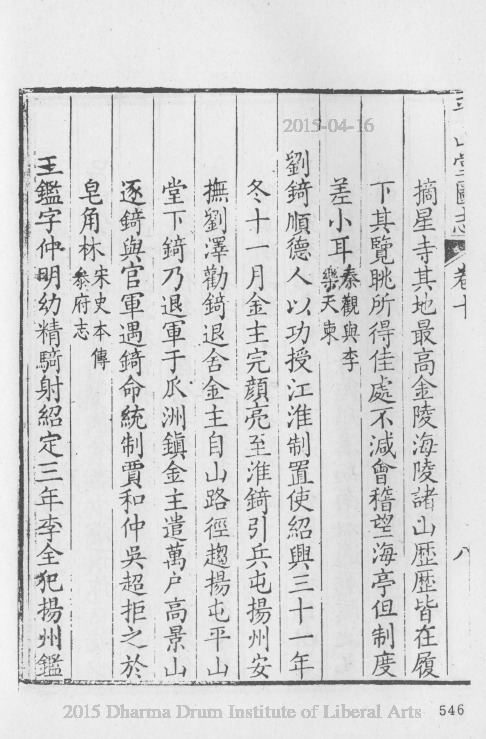 平山堂圖志 卷十 八
摘星寺其地最高金陵海陵諸山歷歷皆在履
下其覽眺所得佳處不減會稽望海亭但制度
差小耳秦觀與李樂天柬
劉錡順德人以功授江淮制置使紹興三十一年
冬十一月金主完顏亮至淮錡引兵屯揚州安
撫劉澤勸錡退舍金主自山路徑趨揚屯平山
堂下錡乃退軍于瓜洲鎮金主遣萬户高景山
逐錡與官軍遇錡命統制賈和仲吳超拒之於
皂角林宋史本傳叅府志
王鑑字仲明幼精騎射紹定三年李全犯揚州鑑
2015-04-16
2015 Dharma Drum Institute of Liberal Arts
546